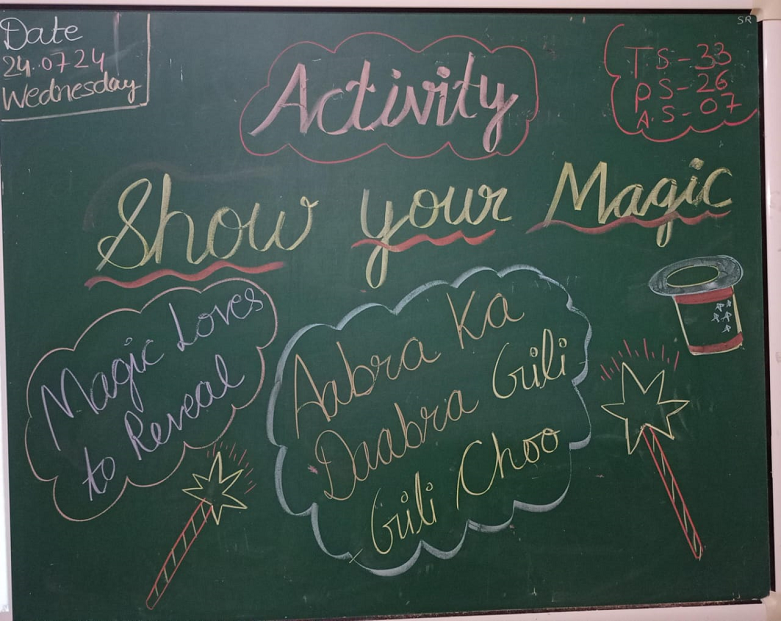 Date
24.07.24
Wednesday
Activity
SR
TS-33
PS-26
A.S-07
Show your Magic
Magic Loves
to Reveal
Aabra Ka
Daabra Gili
Gili Choo